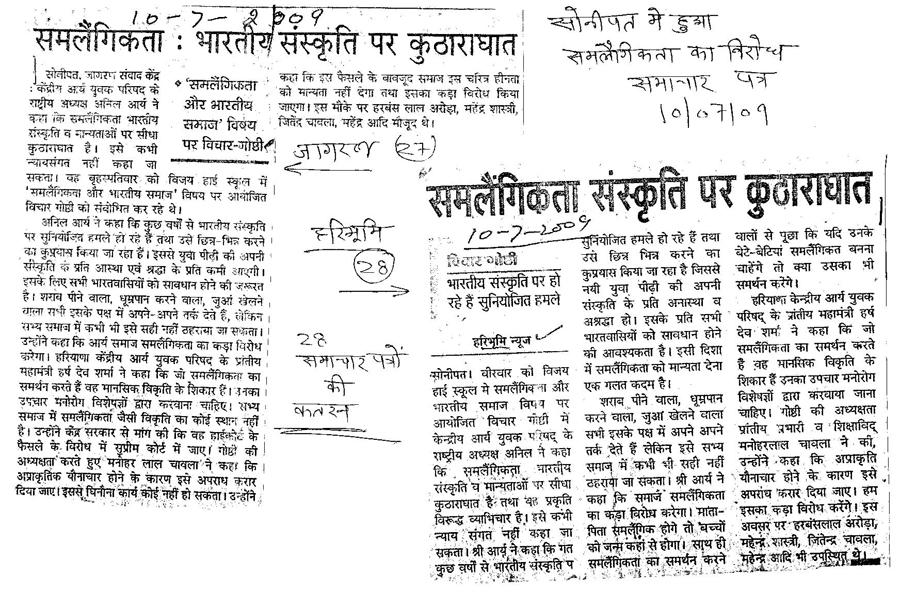 10-7-2009
समलैंगिकता : भारतीय संस्कृति पर कुठाराघात
सोनीपत, जागरण संवाद केंद्र
: केंद्रीय आर्य युवक परिषद के
राष्ट्रीय अध्यक्ष अनिल आर्य ने
कहा कि समलैंगिकता भारतीय
संस्कृति व मान्यताओं पर सीधा
कुठाराघात है। इसे कभी
न्यायसंगत नहीं कहा जा
सकता। वह बृहस्पतिवार को विजय हाई स्कूल में
'समलैंगिकता और भारतीय समाज' विषय पर आयोजित
विचार गोष्ठी को संबोधित कर रहे थे।
अनिल आर्य ने कहा कि कुछ वर्षों से भारतीय संस्कृति
पर सुनियोजित हमले हो रहे हैं तथा उसे छिन्न-भिन्न करने
का कुप्रयास किया जा रहा है। इससे युवा पीढ़ी की अपनी
संस्कृति के प्रति आस्था एवं श्रद्धा के प्रति कमी आएगी।
इसके लिए सभी भारतवासियों को सावधान होने की जरूरत
है। शराब पीने वाला, धूम्रपान करने वाला, जुआं खेलने
वाला सभी इसके पक्ष में अपने-अपने तर्क देते हैं, लेकिन
सभ्य समाज में कभी भी इसे सही नहीं ठहराया जा सकता।
उन्होंने कहा कि आर्य समाज समलैंगिकता का कड़ा विरोध
करेगा। हरियाणा केंद्रीय आर्य युवक परिषद के प्रांतीय
महामंत्री हर्ष देव शर्मा ने कहा कि जो समलैंगिकता का
समर्थन करते हैं वह मानसिक विकृति के शिकार हैं। उनका
उपचार मनोरोग विशेषज्ञों द्वारा करवाना चाहिए। सभ्य
समाज में समलैंगिकता जैसी विकृति का कोई स्थान नहीं
है। उन्होंने केंद्र सरकार से मांग की कि वह हाईकोर्ट के
फैसले के विरोध में सुप्रीम कोर्ट में जाए। गोष्ठी की
अध्यक्षता करते हुए मनोहर लाल चावला ने कहा कि
अप्राकृतिक यौनाचार होने के कारण इसे अपराध करार
दिया जाए। इससे घिनौना कार्य कोई नहीं हो सकता। उन्होंने
'समलैंगिकता
और भारतीय
समाज' विषय
पर विचार-गोष्ठी
कहा कि इस फैसले के बावजूद समाज इस चरित्र हीनता
को मान्यता नहीं देगा तथा इसका कड़ा विरोध किया
जाएगा। इस मौके पर हरबंस लाल अरोड़ा, महेंद्र शास्त्री,
जितेंद्र चावला, महेंद्र आदि मौजूद थे।
जागरण 27
हरिभूमि
28
28
समाचार पत्रों
की
कतरन
सोनीपत में हुआ
समलैंगिकता का विरोध
समाचार पत्र
10/07/09
समलैंगिकता संस्कृति पर कुठाराघात
10-7-2009
विचार गोष्ठी
भारतीय संस्कृति पर हो
रहे हैं सुनियोजित हमले
हरिभूमि न्यूज
सोनीपत। वीरवार को विजय
हाई स्कूल मे समलैंगिकता और
भारतीय समाज विषय पर
आयोजित विचार गोष्ठी में
केन्द्रीय आर्य युवक परिषद् के
राष्ट्रीय अध्यक्ष अनिल ने कहा
कि समलैंगिकता भारतीय
संस्कृति व मान्यताओं पर सीधा
कुठाराघात है तथा यह प्रकृति
विरूद्ध व्याभिचार है। इसे कभी
न्याय संगत नहीं कहा जा
सकता। श्री आर्य ने कहा कि गत
कुछ वर्षो से भारतीय संस्कृति प
सुनियोजित हमले हो रहे हैं तथा
उसे छिन्न भिन्न करने का
कुप्रयास किया जा रहा है जिससे
नयी युवा पीढ़ी की अपनी
संस्कृति के प्रति अनास्था व
अश्रद्धा हो। इसके प्रति सभी
भारतवासियों को सावधान होने
की आवश्यकता है। इसी दिशा
में समलैंगिकता को मान्यता देना
एक गलत कदम है।
शराब पीने वाला, धूम्रपान
करने वाला, जुआं खेलने वाला
सभी इसके पक्ष में अपने अपने
तर्क देते हैं लेकिन इसे सभ्य
समाज में कभी भी सही नहीं
ठहराया जा सकता। श्री आर्य ने
कहा कि समाज समलैंगिकता
का कड़ा विरोध करेगा। माता-
पिता समलैंगिक होगे तो बच्चों
को जन्म कहां से होगा। साथ ही
समलैंगिकता का समर्थन करने
वालों से पूछा कि यदि उनके
बेटे-बेटियां समलैंगिकत बनना
चाहेंगे तो क्या उसका भी
समर्थन करेंगे।
हरियाणा केन्द्रीय आर्य युवक
परिषद् के प्रांतीय महामंत्री हर्ष
देव शर्मा ने कहा कि जो
समलैंगिकता का समर्थन करते
हैं वह मानसिक विकृति के
शिकार हैं उनका उपचार मनोरोग
विशेषज्ञों द्वारा करवाया जाना
चाहिए। गोष्ठी की अध्यक्षता
प्रांतीय प्रभारी व शिक्षाविद्
मनोहरलाल चावला ने की,
उन्होंने कहा कि अप्राकृति
यौनाचार होने के कारण इसे
अपराध करार दिया जाए। हम
इसका कड़ा विरोध करेंगे। इस
अवसर पर हरबंसलाल अरोड़ा,
महेन्द्र शास्त्री, जितेन्द्र चावला,
महेन्द्र आदि भी उपस्थित थे।